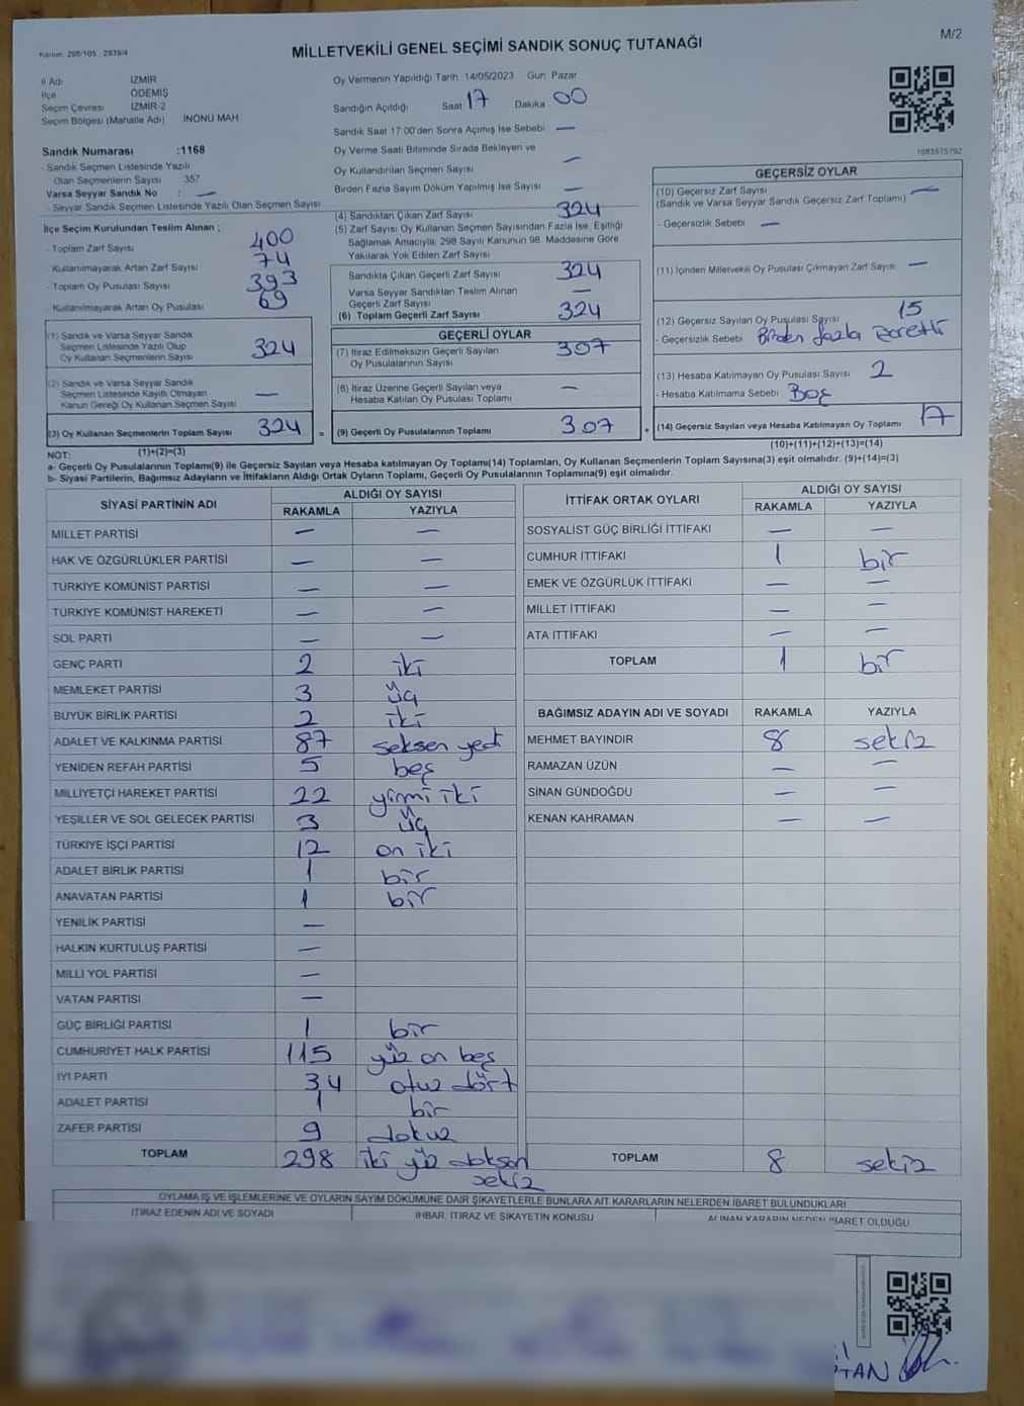 Kanun: 298/105 , 2839/4
MİLLETVEKİLİ GENEL SEÇİMİ SANDIK SONUÇ TUTANAĞI
M/2
İl Adı İZMİR
İlçe ÖDEMİŞ
Seçim Çevresi İZMİR-2
Seçim Bölgesi (Mahalle Adı) İNÖNÜ MAH
Oy Vermenin Yapıldığı Tarih 14/05/2023 Gün Pazar
Sandığın Açıldığı Saat 17 Dakika 00
Sandık Saat 17:00'den Sonra Açılmış İse Sebebi —
Oy Verme Saati Bitiminde Sırada Bekleyen ve
Oy Kullandırılan Seçmen Sayısı —
Birden Fazla Sayım Döküm Yapılmış İse Sayısı —
Sandık Numarası :1168
- Sandık Seçmen Listesinde Yazılı
Olan Seçmenlerin Sayısı 357
Varsa Seyyar Sandık No : —
- Seyyar Sandık Seçmen Listesinde Yazılı Olan Seçmen Sayısı
İlçe Seçim Kurulundan Teslim Alınan ;
- Toplam Zarf Sayısı 400
Kullanılmayarak Artan Zarf Sayısı 74
- Toplam Oy Pusulası Sayısı 393
- Kullanılmayarak Artan Oy Pusulası 69
(1) Sandık ve Varsa Seyyar Sandık
Seçmen Listesinde Yazılı Olup
Oy Kullanan Seçmenlerin Sayısı 324
(2) Sandık ve Varsa Seyyar Sandık
Seçmen Listesinde Kayıtlı Olmayan
Kanun Gereği Oy Kullanan Seçmen Sayısı —
(3) Oy Kullanan Seçmenlerin Toplam Sayısı 324 =
(1)+(2)=(3)
(4) Sandıktan Çıkan Zarf Sayısı 324
(5) Zarf Sayısı Oy Kullanan Seçmen Sayısından Fazla İse, Eşitliği
Sağlamak Amacıyla, 298 Sayılı Kanunun 98. Maddesine Göre
Yakılarak Yok Edilen Zarf Sayısı
Sandıkta Çıkan Geçerli Zarf Sayısı 324
Varsa Seyyar Sandıktan Teslim Alınan
Geçerli Zarf Sayısı —
(6) Toplam Geçerli Zarf Sayısı 324
GEÇERLİ OYLAR
(7) İtiraz Edilmeksizin Geçerli Sayılan
Oy Pusulalarının Sayısı 307
(8) İtiraz Üzerine Geçerli Sayılan veya
Hesaba Katılan Oy Pusulası Toplamı —
(9) Geçerli Oy Pusulalarının Toplamı 307 +
1083575792
GEÇERSİZ OYLAR
(10) Geçersiz Zarf Sayısı —
(Sandık ve Varsa Seyyar Sandık Geçersiz Zarf Toplamı)
- Geçersizlik Sebebi —
(11) İçinden Milletvekili Oy Pusulası Çıkmayan Zarf Sayısı —
(12) Geçersiz Sayılan Oy Pusulası Sayısı 15
- Geçersizlik Sebebi Birden fazla
(13) Hesaba Katılmayan Oy Pusulası Sayısı 2
- Hesaba Katılmama Sebebi Boş
(14) Geçersiz Sayılan veya Hesaba Katılmayan Oy Toplamı 17
(10)+(11)+(12)+(13)=(14)
NOT:
a- Geçerli Oy Pusulalarının Toplamı(9) ile Geçersiz Sayılan veya Hesaba katılmayan Oy Toplamı(14) Toplamları, Oy Kullanan Seçmenlerin Toplam Sayısına(3) eşit olmalıdır. (9)+(14)=(3)
b- Siyasi Partilerin, Bağımsız Adayların ve İttifakların Aldığı Ortak Oyların Toplamı, Geçerli Oy Pusulalarının Toplamına(9) eşit olmalıdır.
SİYASİ PARTİNİN ADI ALDIĞI OY SAYISI
RAKAMLA YAZIYLA
MİLLET PARTİSİ — —
HAK VE ÖZGÜRLÜKLER PARTİSİ — —
TÜRKİYE KOMÜNİST PARTİSİ — —
TÜRKİYE KOMÜNİST HAREKETİ — —
SOL PARTİ — —
GENÇ PARTİ 2 iki
MEMLEKET PARTİSİ 3 üç
BÜYÜK BİRLİK PARTİSİ 2 iki
ADALET VE KALKINMA PARTİSİ 87 seksen yedi
YENİDEN REFAH PARTİSİ 5 beş
MİLLİYETÇİ HAREKET PARTİSİ 22 yirmi iki
YEŞİLLER VE SOL GELECEK PARTİSİ 3 üç
TÜRKİYE İŞÇİ PARTİSİ 12 on iki
ADALET BİRLİK PARTİSİ 1 bir
ANAVATAN PARTİSİ 1 bir
YENİLİK PARTİSİ —
HALKIN KURTULUŞ PARTİSİ —
MİLLİ YOL PARTİSİ —
VATAN PARTİSİ —
GÜÇ BİRLİĞİ PARTİSİ 1 bir
CUMHURİYET HALK PARTİSİ 115 yüz on beş
İYİ PARTİ 34 otuz dört
ADALET PARTİSİ 1 bir
ZAFER PARTİSİ 9 dokuz
TOPLAM 298 iki yüz doksan
sekiz
İTTİFAK ORTAK OYLARI ALDIĞI OY SAYISI
RAKAMLA YAZIYLA
SOSYALİST GÜÇ BİRLİĞİ İTTİFAKI — —
CUMHUR İTTİFAKI 1 bir
EMEK VE ÖZGÜRLÜK İTTİFAKI — —
MİLLET İTTİFAKI — —
ATA İTTİFAKI — —
TOPLAM 1 bir
BAĞIMSIZ ADAYIN ADI VE SOYADI RAKAMLA YAZIYLA
MEHMET BAYINDIR 8 sekiz
RAMAZAN ÜZÜN — —
SİNAN GÜNDOĞDU — —
KENAN KAHRAMAN — —
TOPLAM 8 sekiz
OYLAMA İŞ VE İŞLEMLERİNE VE OYLARIN SAYIM DÖKÜMÜNE DAİR ŞİKAYETLERLE BUNLARA AİT KARARLARIN NELERDEN İBARET BULUNDUKLARI
İTİRAZ EDENİN ADI VE SOYADI İHBAR, İTİRAZ VE ŞİKAYETİN KONUSU ALINAN KARARIN NEDEN İBARET OLDUĞU